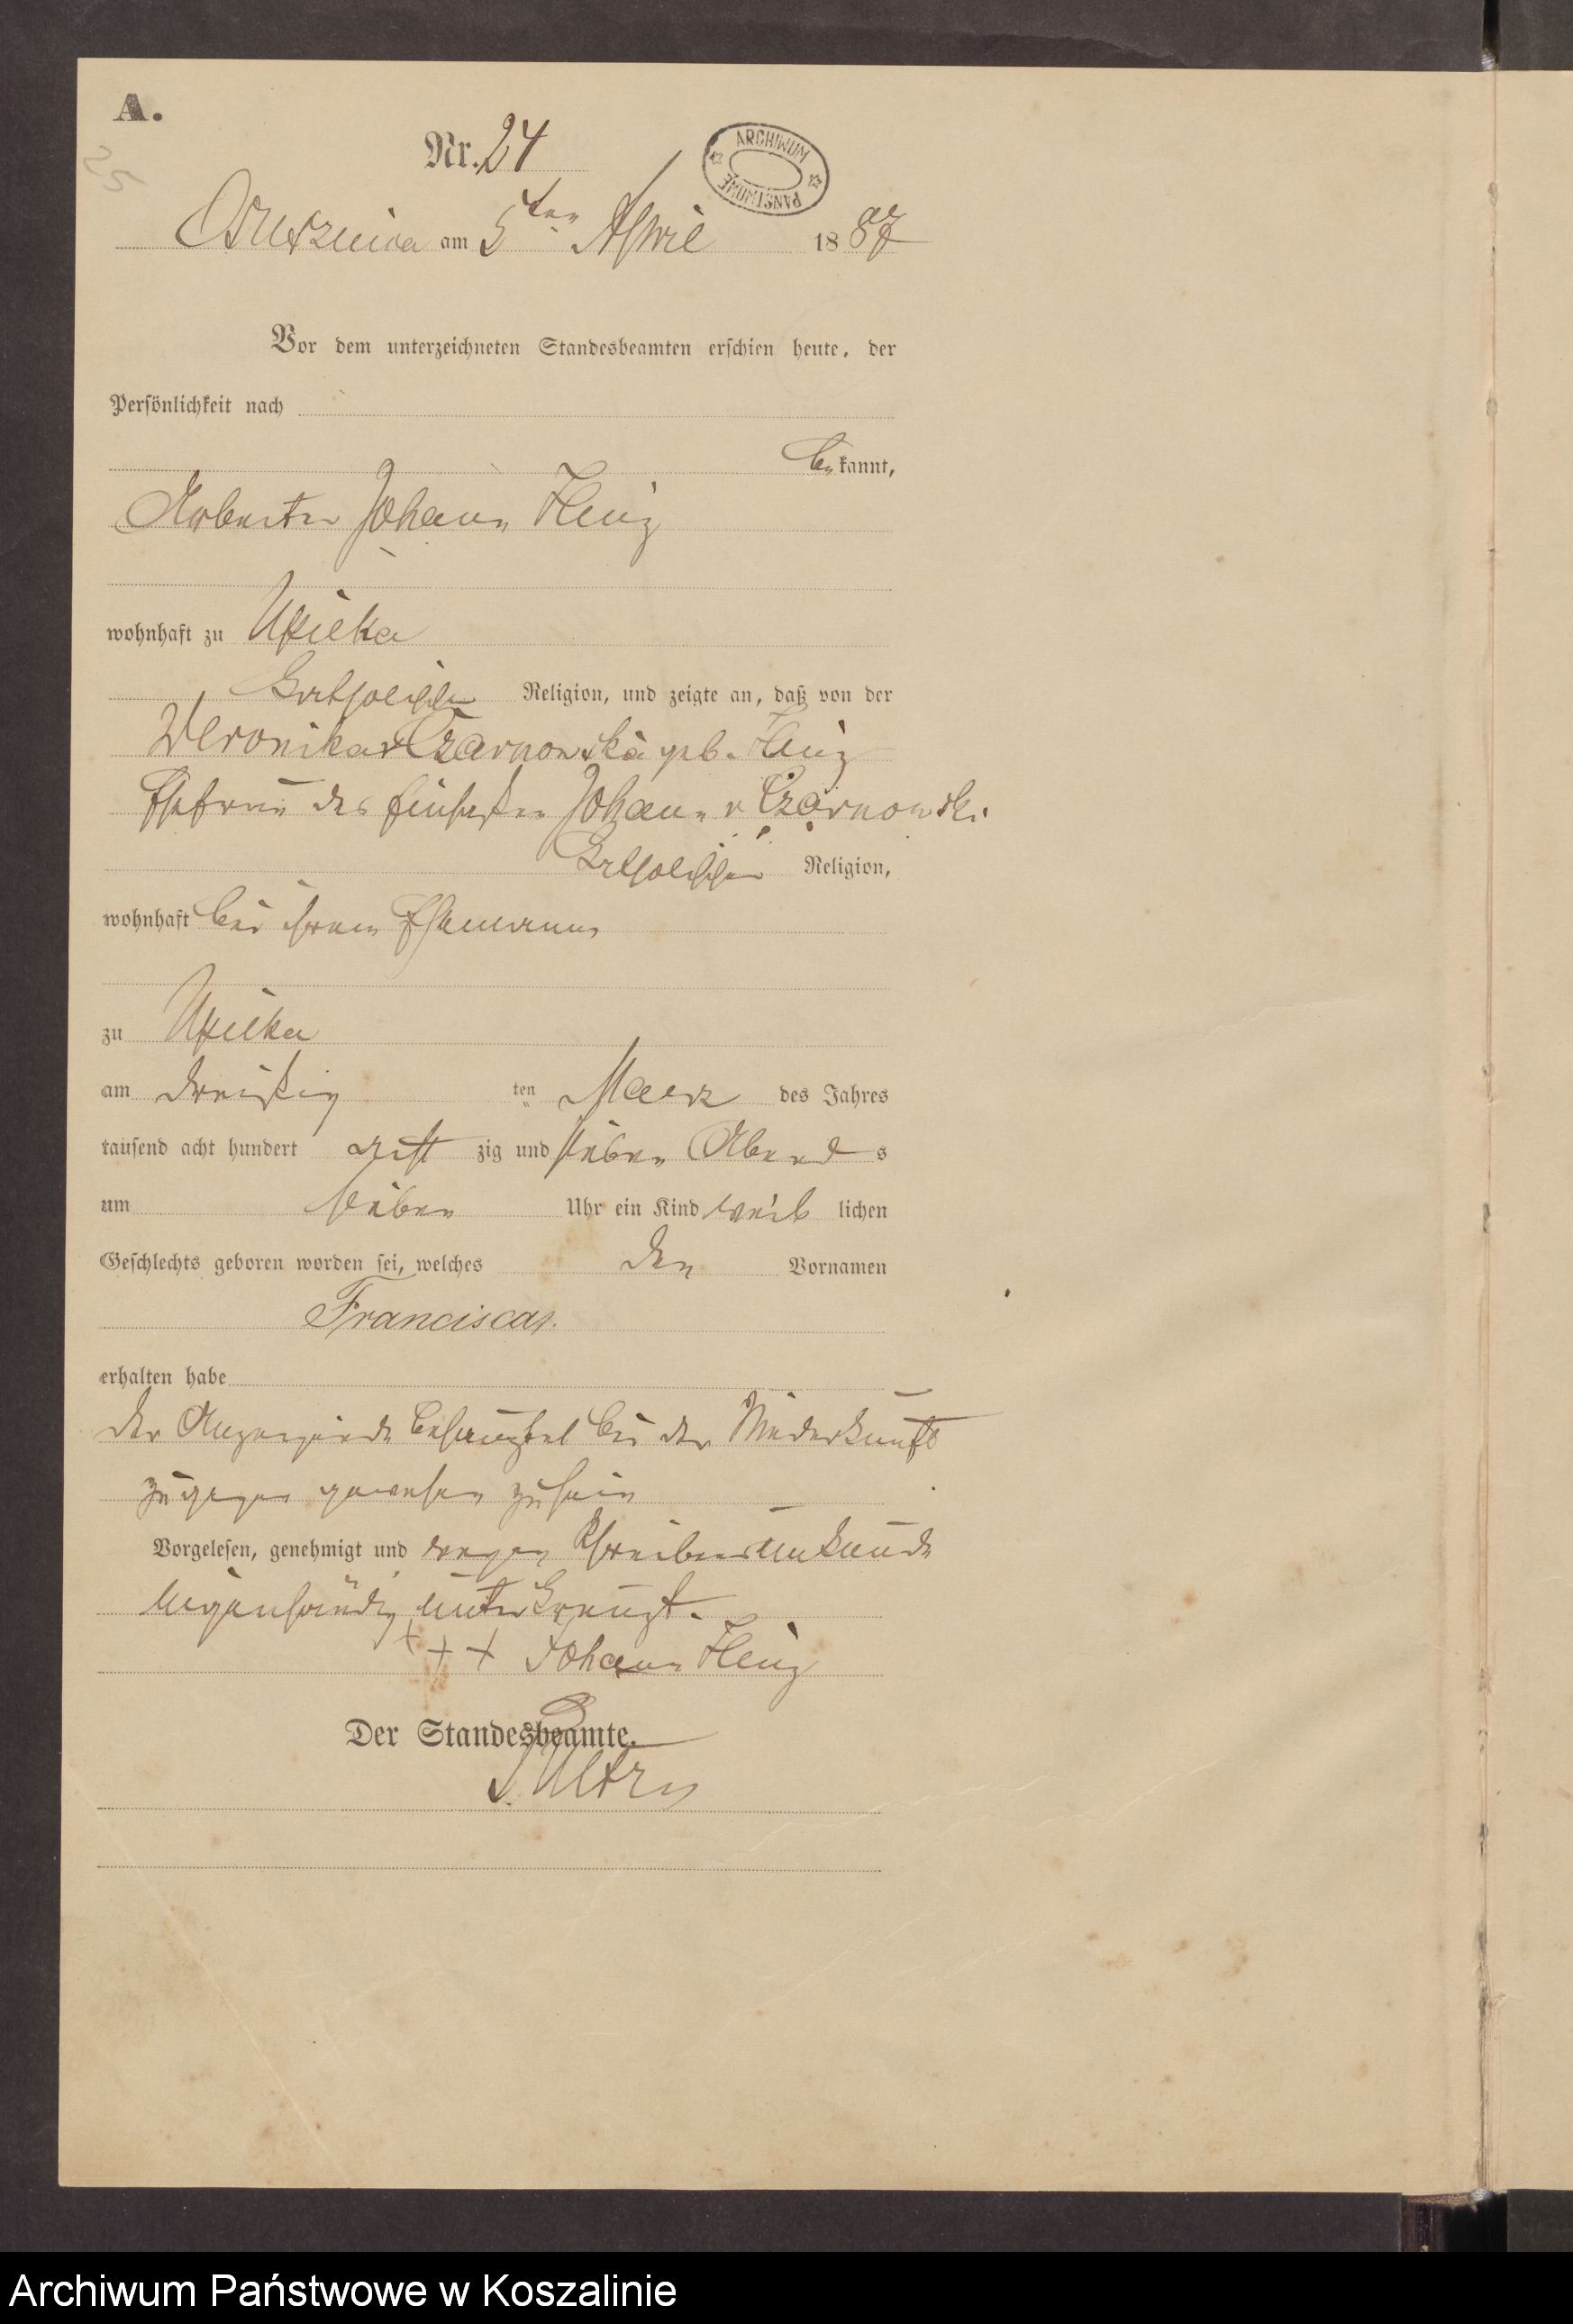 A.
25
Nr. 24
ARCHIWUM PAŃSTWOWE
am 5ten April 1887
Vor dem unterzeichneten Standesbeamten erschien heute, der
Persönlichkeit nach
bekannt,
Arbeiter Johann
wohnhaft zu
Katholischer Religion, und zeigte an, daß von der
Veronika v Czarnowska geb.
Ehefrau des Johann v Czarnowski
Katholischer Religion,
wohnhaft bei ihrem Ehemann
zu
am dreißig ten Maerz des Jahres
tausend acht hundert acht zig und sieben Abend s
um sieben Uhr ein Kind weib lichen
Geschlechts geboren worden sei, welches den Vornamen
Francisca
erhalten habe
der Anzeigende bei der Niederkunft
zugegen gewesen zu sein
Vorgelesen, genehmigt und wegen Schreibensunkunde
eigenhändig unterkreuzt.
+++ Johann
Der Standesbeamte.
Archiwum Państwowe w Koszalinie